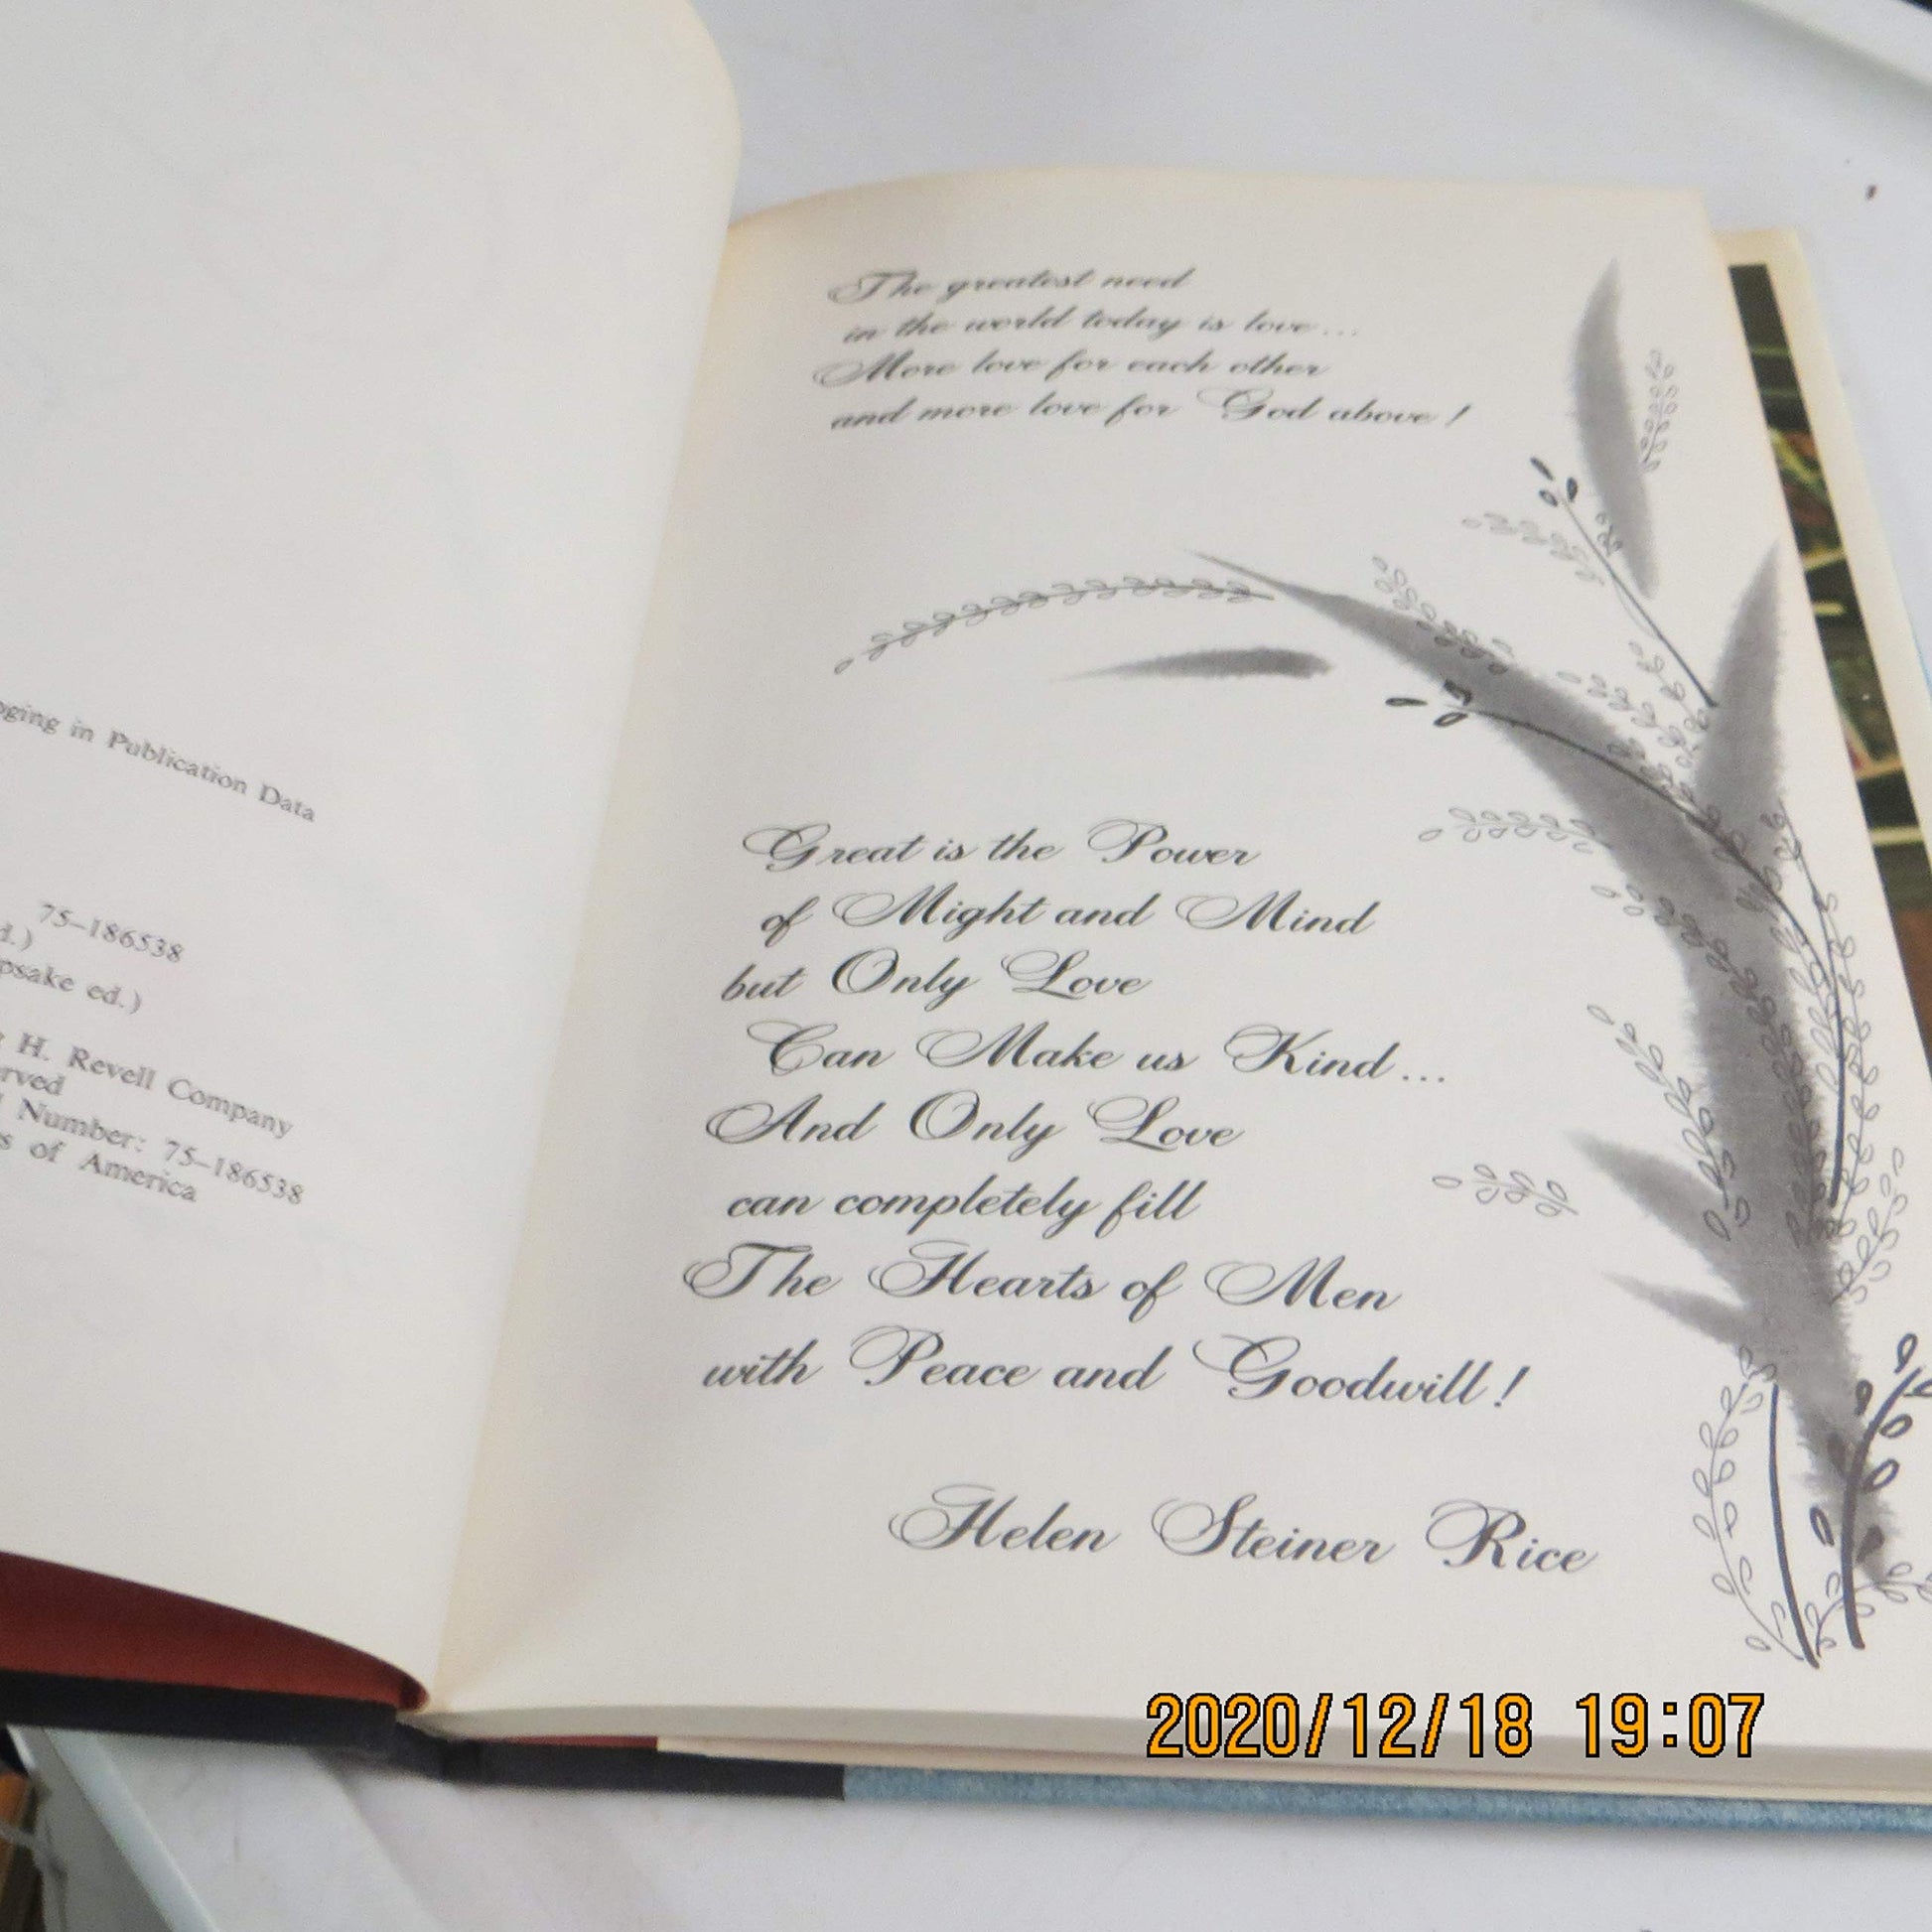 in Publication Data
75-186538
ed.)
H. Revell Company
Number: 75-186538
of America
The greatest need
in the world today is love...
More love for each other
and more love for God above!
Great is the Power
of Might and Mind
but Only Love
Can Make us Kind...
And Only Love
can completely fill
The Hearts of Men
with Peace and Goodwill!
Helen Steiner Rice
2020/12/18 19:07